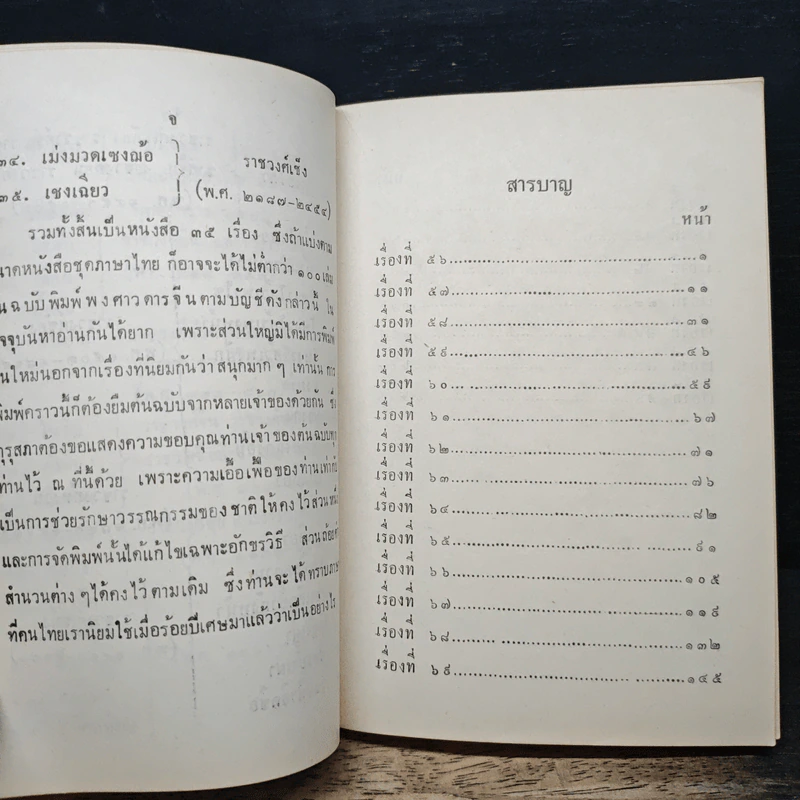 จ
๓๔. เม่งมวดเซงฌ้อ } ราชวงศ์เช็ง
๓๕. เชงเฉียว } (พ.ศ. ๒๑๘๗-๒๔๕๔)
รวมทั้งสิ้นเป็นหนังสือ ๓๕ เรื่อง ซึ่งถ้าแบ่งตาม
นาดหนังสือชุดภาษาไทย ก็อาจจะได้ไม่ต่ำกว่า ๑๐๐ เล่ม
นฉบับพิมพ์พงศาวดารจีนตามบัญชีดังกล่าวนี้ ใน
จจุบันหาอ่านกันได้ยาก เพราะส่วนใหญ่มิได้มีการพิมพ์
นใหม่นอกจากเรื่องที่นิยมกันว่าสนุกมาก ๆ เท่านั้น การ
พิมพ์คราวนี้ก็ต้องยืมต้นฉบับจากหลายเจ้าของด้วยกัน ซึ่ง
คุรุสภาต้องขอแสดงความขอบคุณท่านเจ้าของต้นฉบับทุก
ท่านไว้ ณ ที่นี้ด้วย เพราะความเอื้อเฟื้อของท่านเท่ากับ
เป็นการช่วยรักษาวรรณกรรมของชาติให้คงไว้ส่วนหนึ่ง
และการจัดพิมพ์นั้นได้แก้ไขเฉพาะอักขรวิธี ส่วนถ้อยคำ
สำนวนต่าง ๆ ได้คงไว้ตามเดิม ซึ่งท่านจะได้ทราบภาษา
ที่คนไทยเรานิยมใช้เมื่อร้อยปีเศษมาแล้วว่าเป็นอย่างไร
สารบาญ
หน้า
เรื่องที่ ๕๖ ๑
เรื่องที่ ๕๗ ๑๑
เรื่องที่ ๕๘ ๓๑
เรื่องที่ ๕๙ ๔๖
เรื่องที่ ๖๐ ๕๙
เรื่องที่ ๖๑ ๖๗
เรื่องที่ ๖๒ ๗๑
เรื่องที่ ๖๓ ๗๖
เรื่องที่ ๖๔ ๘๒
เรื่องที่ ๖๕ ๙๑
เรื่องที่ ๖๖ ๑๐๕
เรื่องที่ ๖๗ ๑๑๙
เรื่องที่ ๖๘ ๑๓๒
เรื่องที่ ๖๙ ๑๔๕